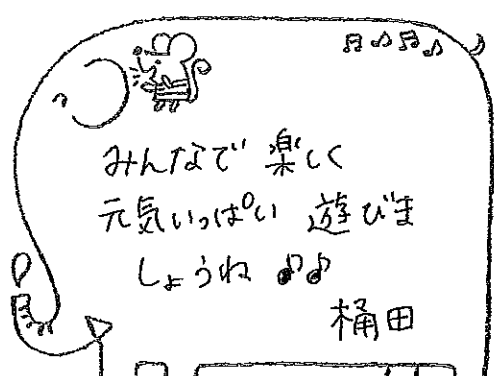 みんなで 楽しく
元気いっぱい 遊びま
しょうね♪♪
桶田